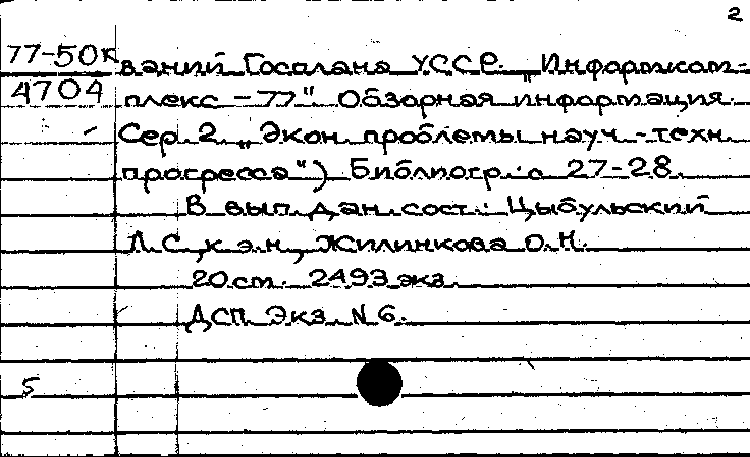 2
77-50к ваний Госплана УССР. „Информком-
4704 плекс – 77". Обзорная информация.
Сер. 2 „Экон. проблемы науч.-техн.
прогресса") Библиогр.: с 27-28.
В вып. дан. сост.: Цыбульский
Л.С., к.э.н., Жилинкова О.Н.
20 см. 2493 экз.
ДСП. Экз. N 6.
5